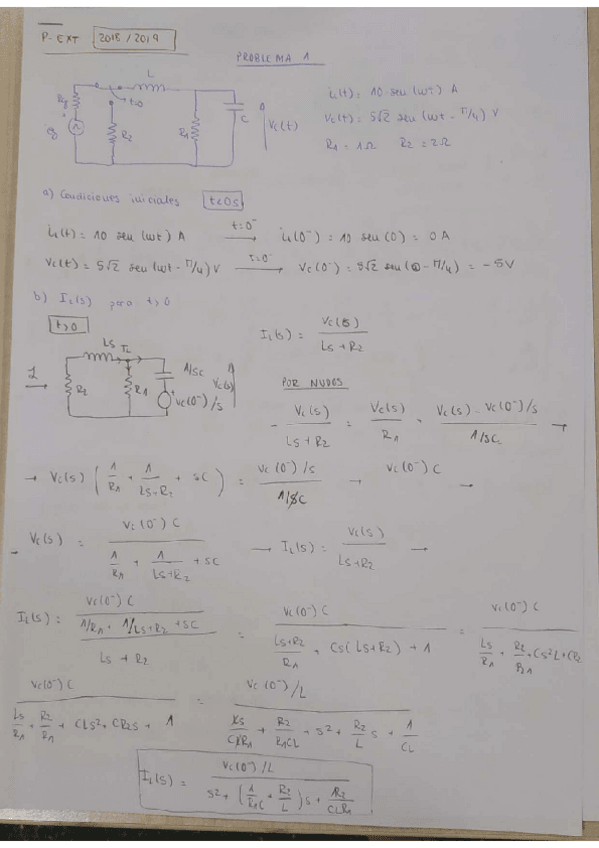 P. EXT 2018/2019
PROBLEMA 1
L
Rg
t=0
eg
R2
R1
C
Vc(t)
iL(t) = 10 sen (wt) A
Vc(t) = 5√2 sen (wt - π/4) V
R1 = 1Ω R2 = 2Ω
a) Condiciones iniciales t<0s
iL(t) = 10 sen (wt) A t=0⁻ → iL(0⁻) = 10 sen (0) = 0A
Vc(t) = 5√2 sen (wt - π/4) V t=0⁻ → Vc(0⁻) = 5√2 sen (0 - π/4) = -5V
b) IL(s) para t>0
t>0
IL(s) = Vc(s) / (Ls + R2)
Ls IL
R2 R1 1/sC
Vc(0⁻)/s
Vc(s)
POR NUDOS
- Vc(s) / (Ls + R2) = Vc(s) / R1 + (Vc(s) - Vc(0⁻)/s) / (1/sC) →
→ Vc(s) (1/R1 + 1/(Ls+R2) + sC) = (Vc(0⁻)/s) / (1/sC) → Vc(0⁻) C →
→ Vc(s) = Vc(0⁻) C / (1/R1 + 1/(Ls+R2) + sC) → IL(s) = Vc(s) / (Ls+R2) →
IL(s) = (Vc(0⁻) C / (1/R1 + 1/Ls+R2 + sC)) / (Ls + R2) = Vc(0⁻) C / ((Ls+R2)/R1 + Cs(Ls+R2) + 1) = Vc(0⁻) C / (Ls/R1 + R2/R1 + Cs²L + CR2
Vc(0⁻) C / (Ls/R1 + R2/R1 + CLs² + CR2s + 1) = Vc(0⁻)/L / (Ls/CLR1 + R2/R1CL + s² + R2/L s + 1/CL)
IL(s) = Vc(0⁻)/L / (s² + (1/R1C + R2/L)s +